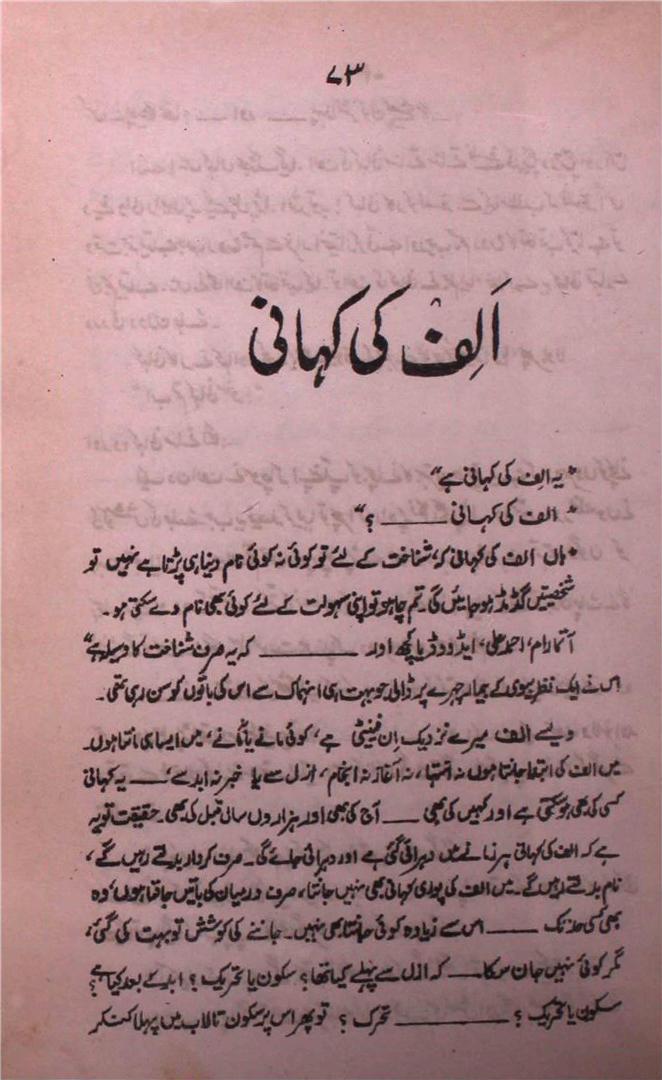 ۷۳
اَلِف کی کہانی
"یہ الِف کی کہانی ہے"
"الف کی کہانی ——— ؟"
"ہاں الف کی کہانی کہ، شناخت کے لئے تو کوئی نہ کوئی نام دینا ہی پڑتا ہے نہیں تو
شخصیتیں گڈ مڈ ہو جائیں گی۔ تم چاہو تو اپنی سہولت کے لئے کوئی بھی نام دے سکتی ہو۔
آتما رام، احمد علی، ایڈورڈ یا کچھ اور ——— کہ یہ صرف شناخت کا وسیلہ ہے"
اس نے ایک نظر بیوی کے بیمار چہرے پر ڈالی جو بہت ہی انہماک سے اس کی باتوں کو سن رہی تھی۔
ویسے الف میرے نزدیک اِن فینیٹی ہے، کوئی مانے یا نہ مانے، میں ایسا ہی مانتا ہوں۔
میں الف کی ابتدا جانتا ہوں نہ انتہا، نہ آغاز نہ انجام، ازل سے یا خبر نہ ابد سے، —— یہ کہانی
کسی کی بھی ہو سکتی ہے اور کہیں کی بھی —— آج کی بھی اور ہزاروں سال قبل کی بھی۔ حقیقت تو یہ
ہے کہ الف کی کہانی ہر زمانے میں دہرائی گئی ہے اور دہرائی جائے گی۔ صرف کردار بدلتے رہیں گے،
نام بدلتے رہیں گے۔ میں الف کی پوری کہانی بھی نہیں جانتا، صرف درمیان کی باتیں جانتا ہوں، وہ
بھی کسی حد تک ——— اس سے زیادہ کوئی جانتا بھی نہیں۔ جاننے کی کوشش تو بہت کی گئی،
مگر کوئی نہیں جان سکا —— کہ ازل سے پہلے کیا تھا؟ سکون یا تحریک؟ ابد کے بعد کیا ہے؟
سکون یا تحریک؟ ——— تحرک؟ تو پھر اس پر سکون تالاب میں پہلا کنکر